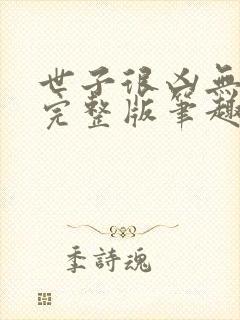 世子很凶無
完整版筆趣
季詩魂